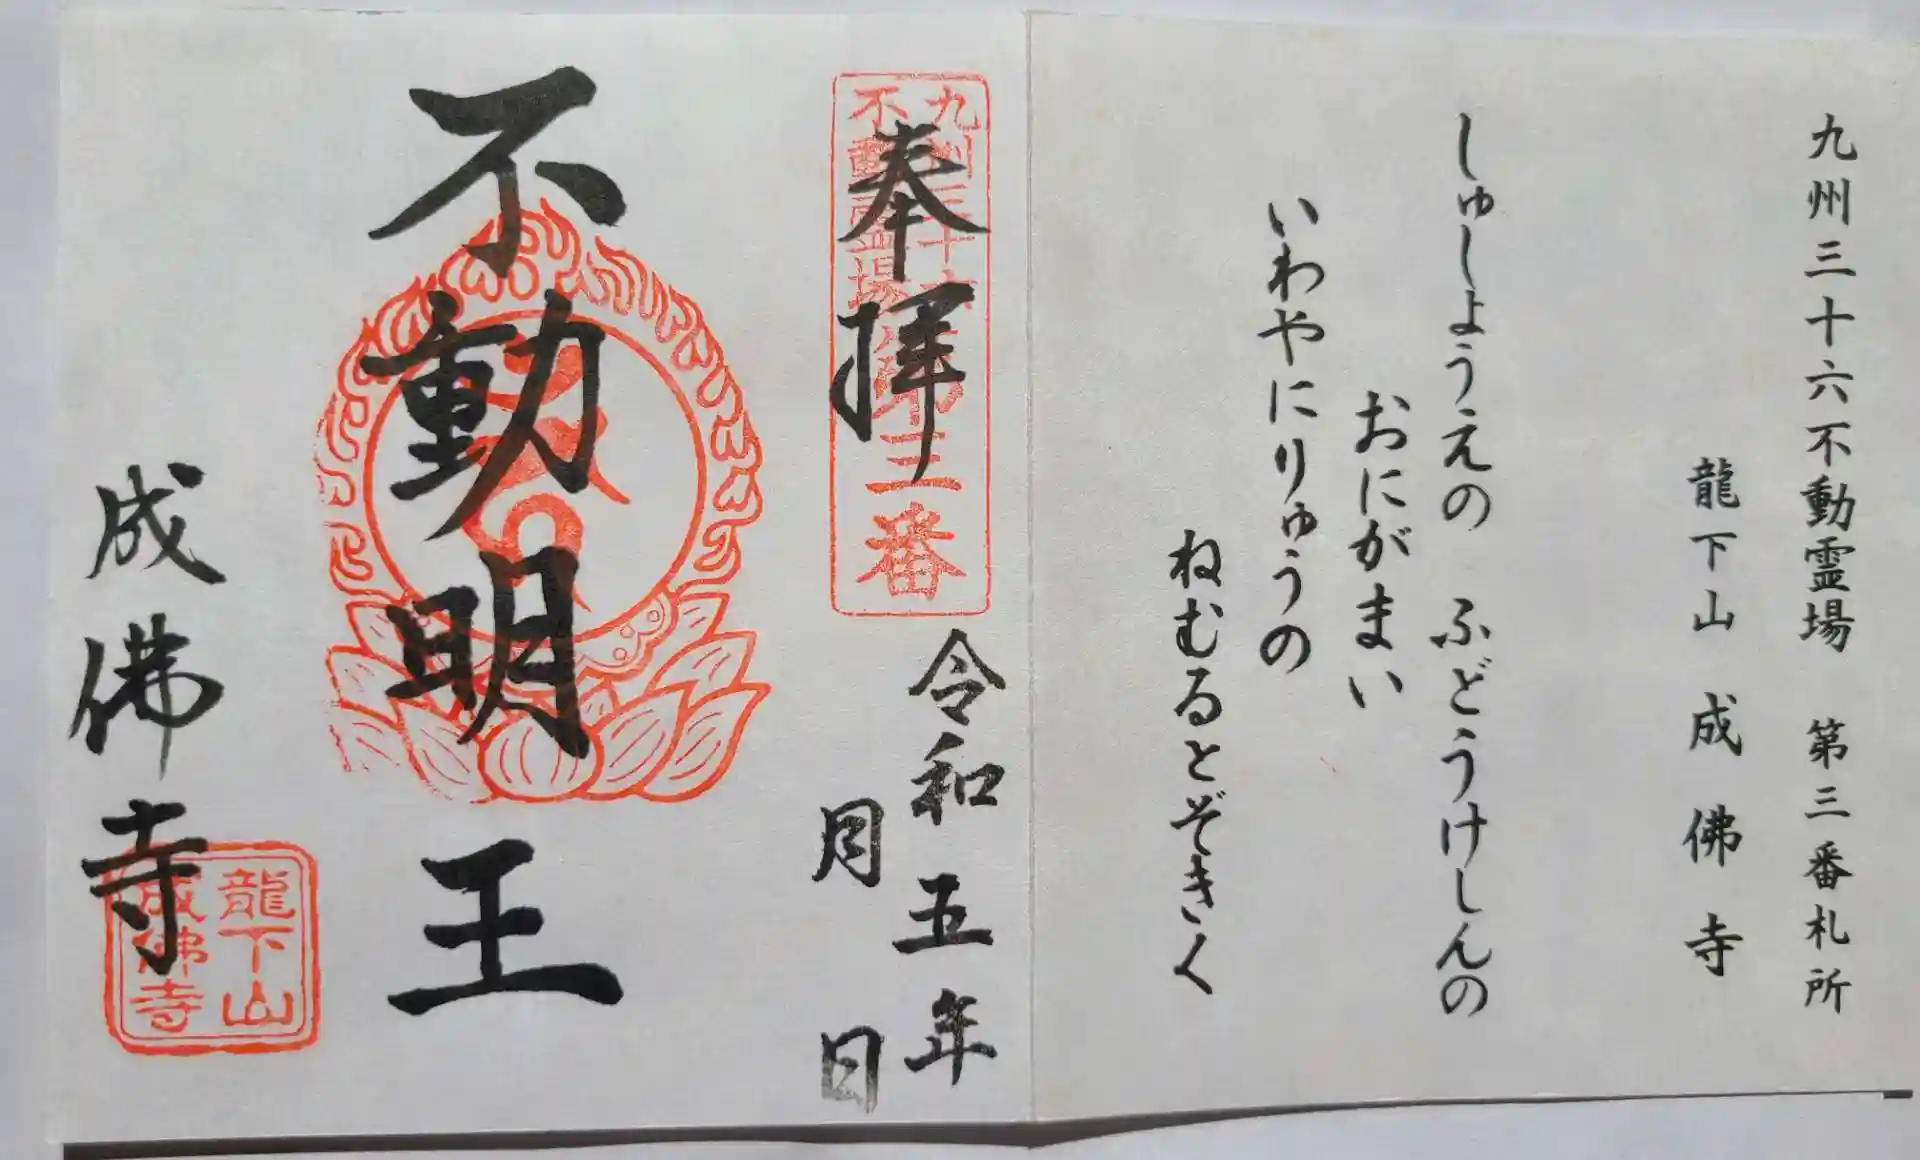 九州三十六不動霊場　第三番札所
龍下山　成佛寺
しゅしょうえの　ふどうけしんの
おにがまい
いわやにりゅうの
ねむるとぞきく
九州三十六
不動霊場
第三番
奉拝
令和五年
月　日
不動明王
成佛寺
龍下山
成佛寺